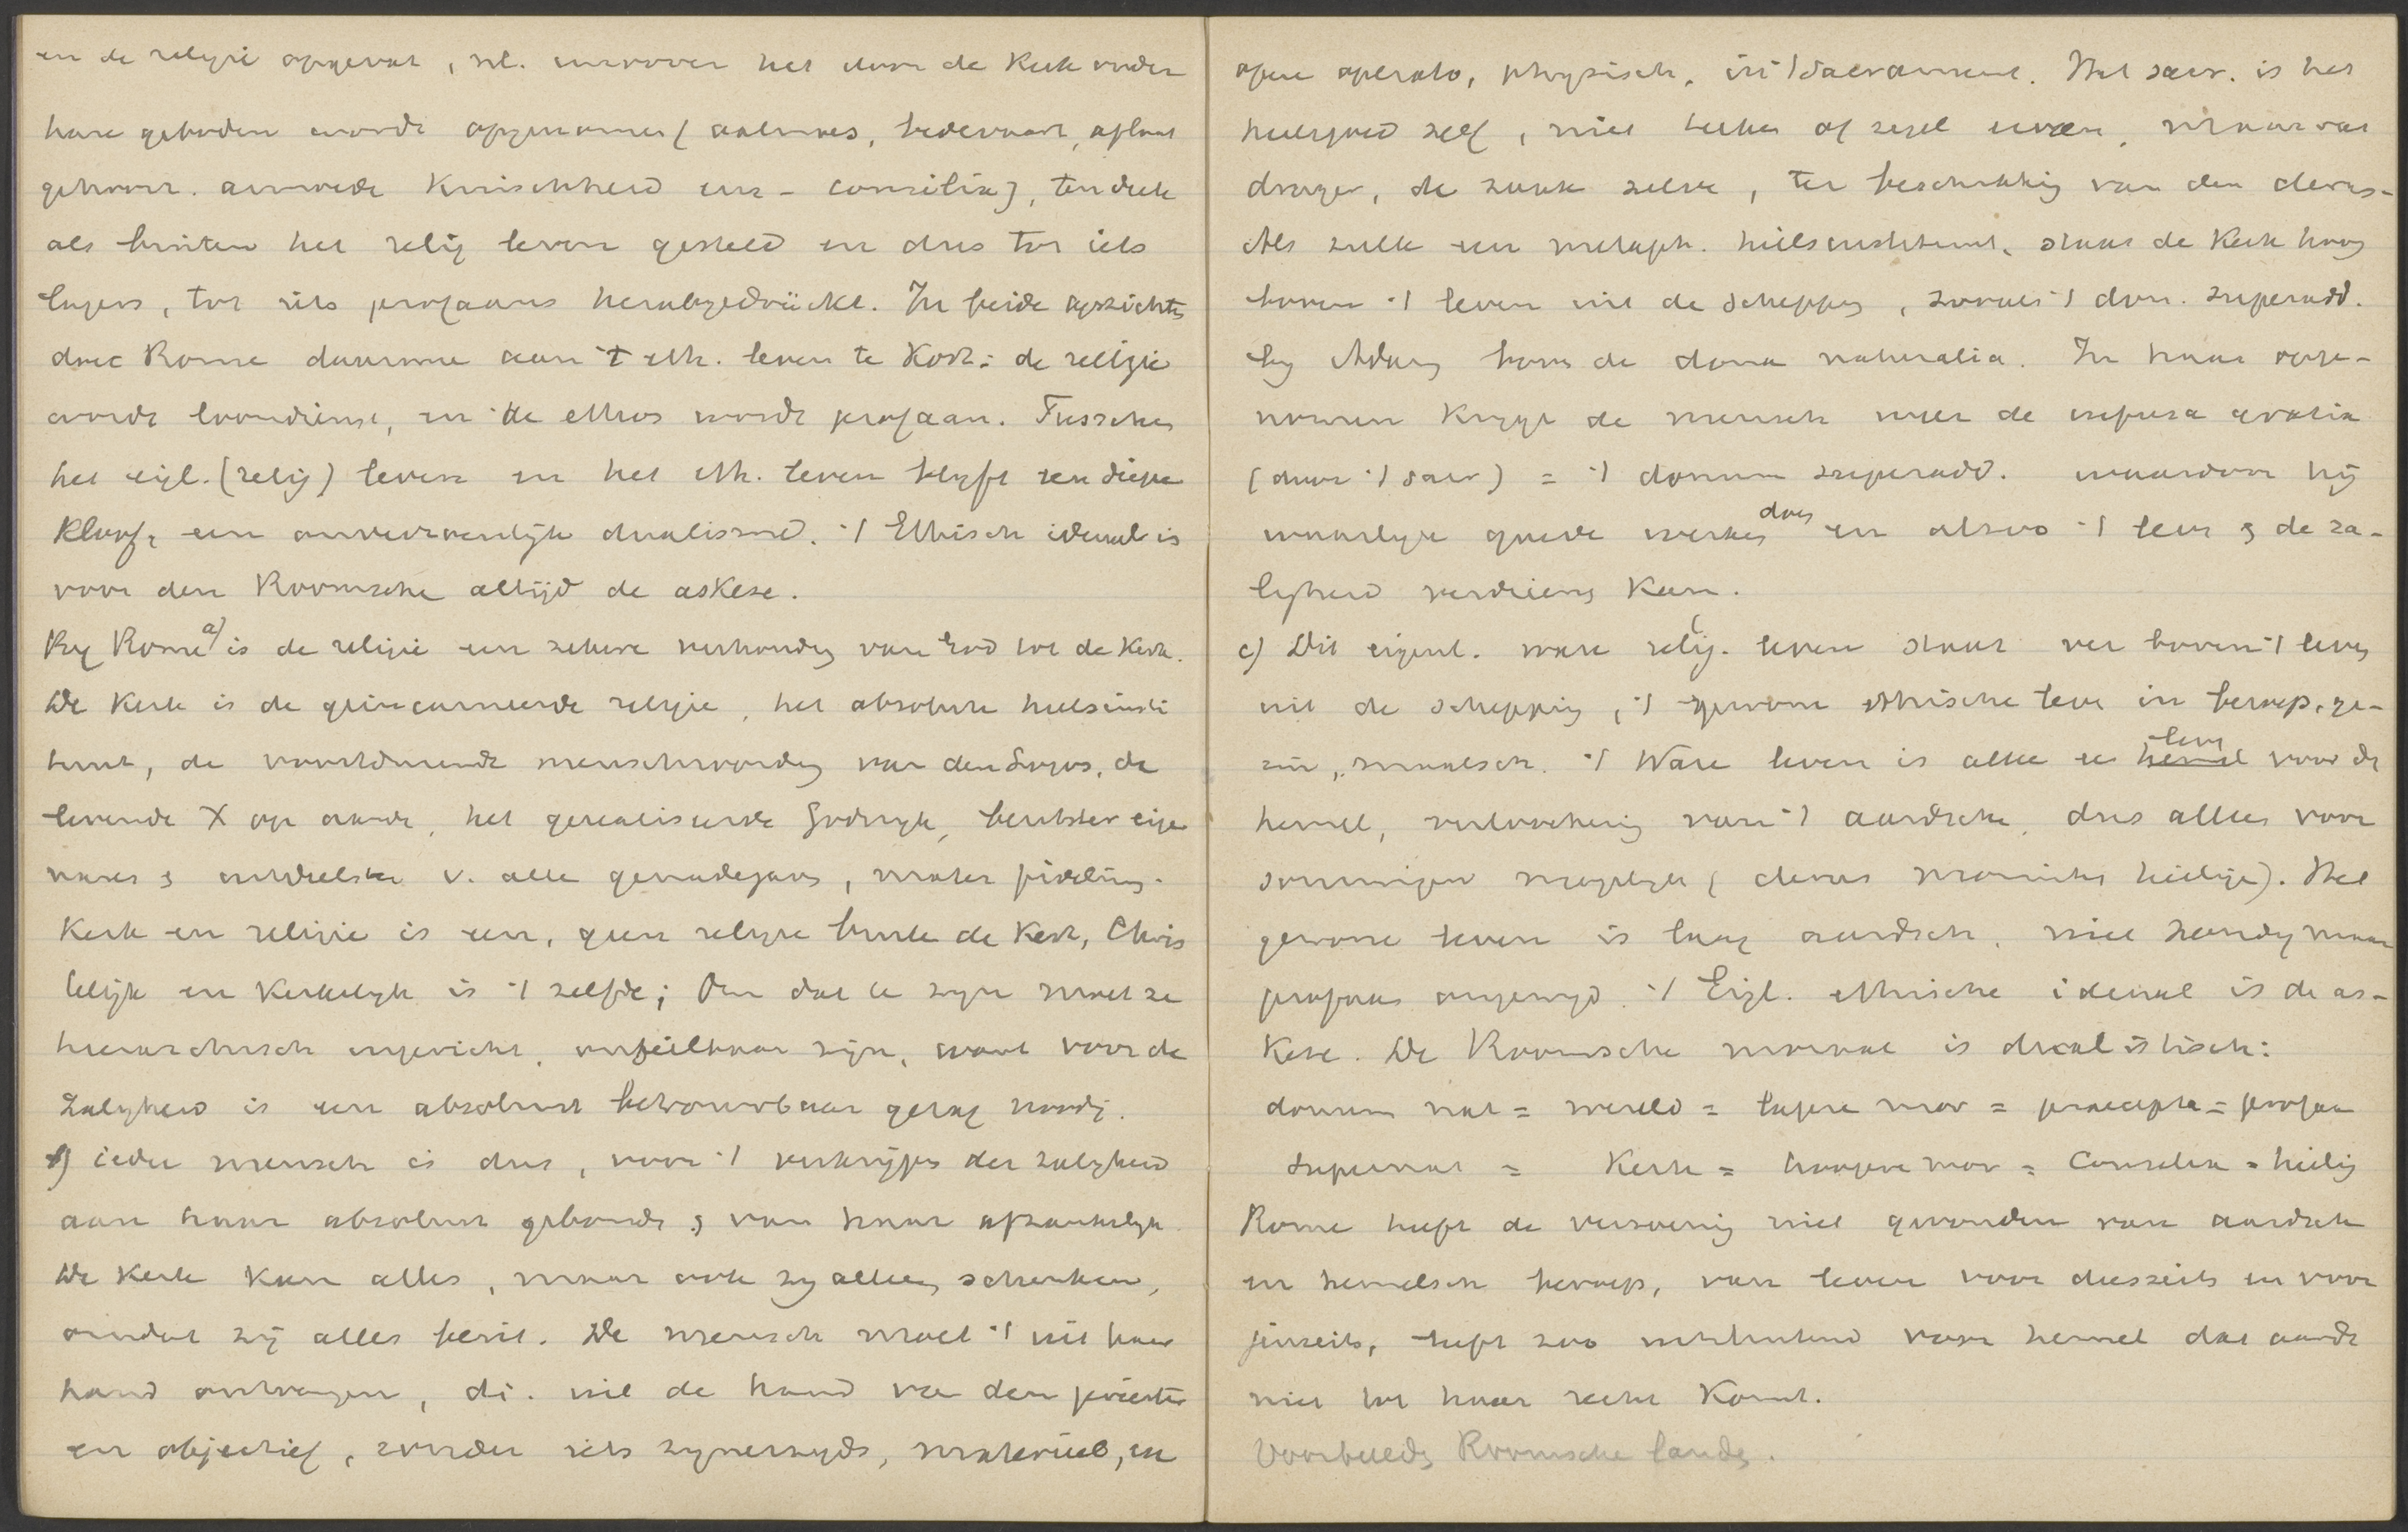 en de religie opgevat, nl. voorover het door de Kerk onder
hare geboden wordt opgenomen (aalmoes, bedevaart, aflaat
gehoorz. armoede Kuischheid enz - consilia), ten deele
als buiten het relig leven gesteld en dus tot iets
lagers, tot iets profaans herabgedrückt. In beide opzichten
doet Rome daarmee aan 't eth. leven te Kort: de religie
wordt loondienst, en de ethos wordt profaan. Tusschen
het eigl. (relig) leven en het eth. leven blijft een diepe
Kloof, een onverzoenlijk dualisme. 't Ethisch ideaal is
voor den Roomsche altijd de askese.
By Rome a) is de religie een zekere verhouding van God tot de Kerk.
De Kerk is de geïncarneerde religie, het absolute heilsinsti
tuut, de voortdurende menschwording van den Logos, de
levende X op aarde, het gerealiseerde Godsryk, bezitster eige
nares & uitdeelster v. alle genadegaven, mater fidelium.
Kerk en religie is een, geen religie buiten de Kerk, Chris
telijk en Kerkelyk is 't zelfde; Om dat te zyn moet ze
hierarchisch ingericht, onfeilbaar zijn, want voor de
Zaligheid is een absoluut betrouwbaar gezag noodig.
b) ieder mensch is dus, voor 't verkrijgen der zaligheid
aan haar absoluut gebonden & van haar afhankelyk.
De Kerk kan alles, maar ook zy alleen schenken,
omdat zij alles bezit. De mensch moet 't uit haar
hand ontvangen, d.i. uit de hand van den priester
en objectief, zonder iets zynerzyds, materieel, ex
opere operato, physisch, in 't Sacrament. Het sacr. is het
heilsgoed zelf, niet teeken of zegel ervan, maar vat
drager, de zaak zelve, ter beschikking van den clerus-
Als zulk een metaph. heilsinstituut, staat de Kerk hoog
boven 't leven uit de schepping, zooals 't don. superadd.
by Adam boven de dona naturalia. In haar opge-
nomen Krygt de mensch weer de infusa gratia
(door 't sacr) = 't donum superadd. waardoor hij
waarlyk goede werken doen en alzoo 't leven & de za-
ligheid verdienen Kan.
c) Dit eigenl. ware relig. leven staat ver boven 't leven
uit de schepping, 't gewone ethische leven in beroep, ge-
zin, maatsch. 't Ware leven is alleen een hemel leven voor de
hemel, verloochening van 't aardsche, dus alleen voor
sommigen mogelyk (clerus monniken heilige). Het
gewone leven is laag aardsch, niet zondig maar
profaan ongewyd. 't Eigl. ethische ideaal is de as-
Kese. De Roomsche moraal is dualistisch:
donum nat = wereld = lagere mor = praecepta = profaan
supernat = Kerk = hoogere mor = Consilia = heilig
Rome heeft de verzoening niet gevonden van aardsch
en hemelsch beroep, van leven voor diesseits en voor
jenseits, heft zoo uitsluitend voor hemel dat aarde
niet tot haar recht Komt.
Voorbeelden Roomsche landen.